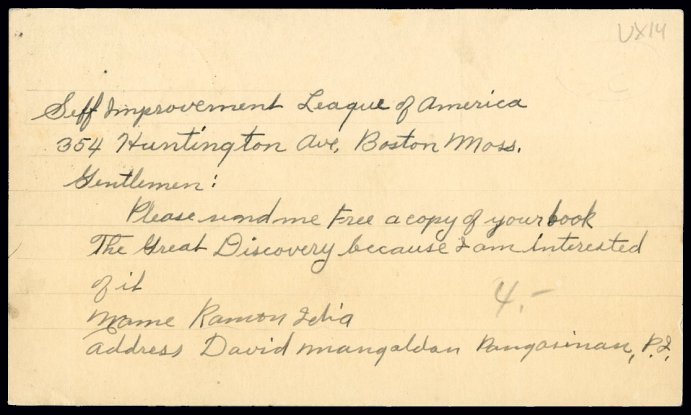 UX14
Self Improvement League of America
354 Huntington Ave, Boston Mass.
Gentlemen:
Please send me free a copy of your book
The Great Discovery because I am interested
of it
4.-
Name Ramon
address David Mangaldan Pangasinan, P.I.